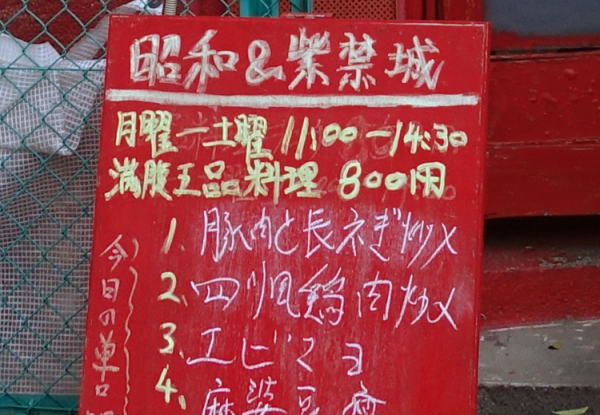 昭和&紫禁城
月曜ー土曜 11:00ー14:30
満腹五品料理 800円
1、豚肉と長ネギ炒メ
2、四川風鶏肉炒メ
3、エビマヨ
4、麻婆豆腐
今日の